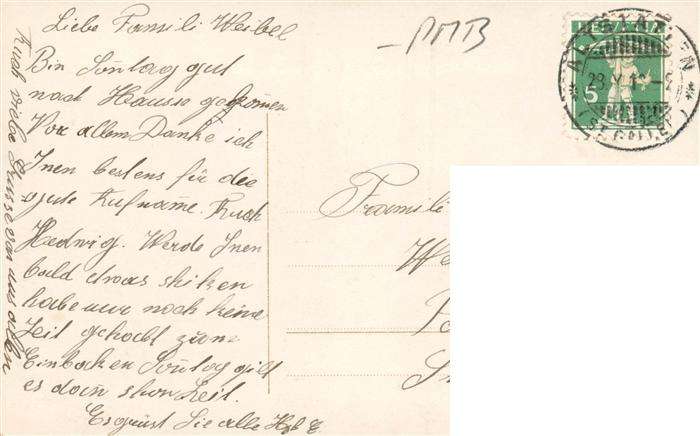 Liebe Famili Weibel
Bin Sontag gut
nach Hausse gekomen
Vor allem Danke ich
Inen bestens für die
gute Aufname. Auch
Hedwig. Werde Inen
bald etwas shiken
habe nur noch keine
Zeit gehabt zum
Einbaken Sontag gibt
es dan shon Zeit.
Es grüst Sie alle
Auch viele Grüsse van uns allen
PMB
HELVETIA
5
ALTSTÄTTEN
(ST. GALLEN)
Famili
We